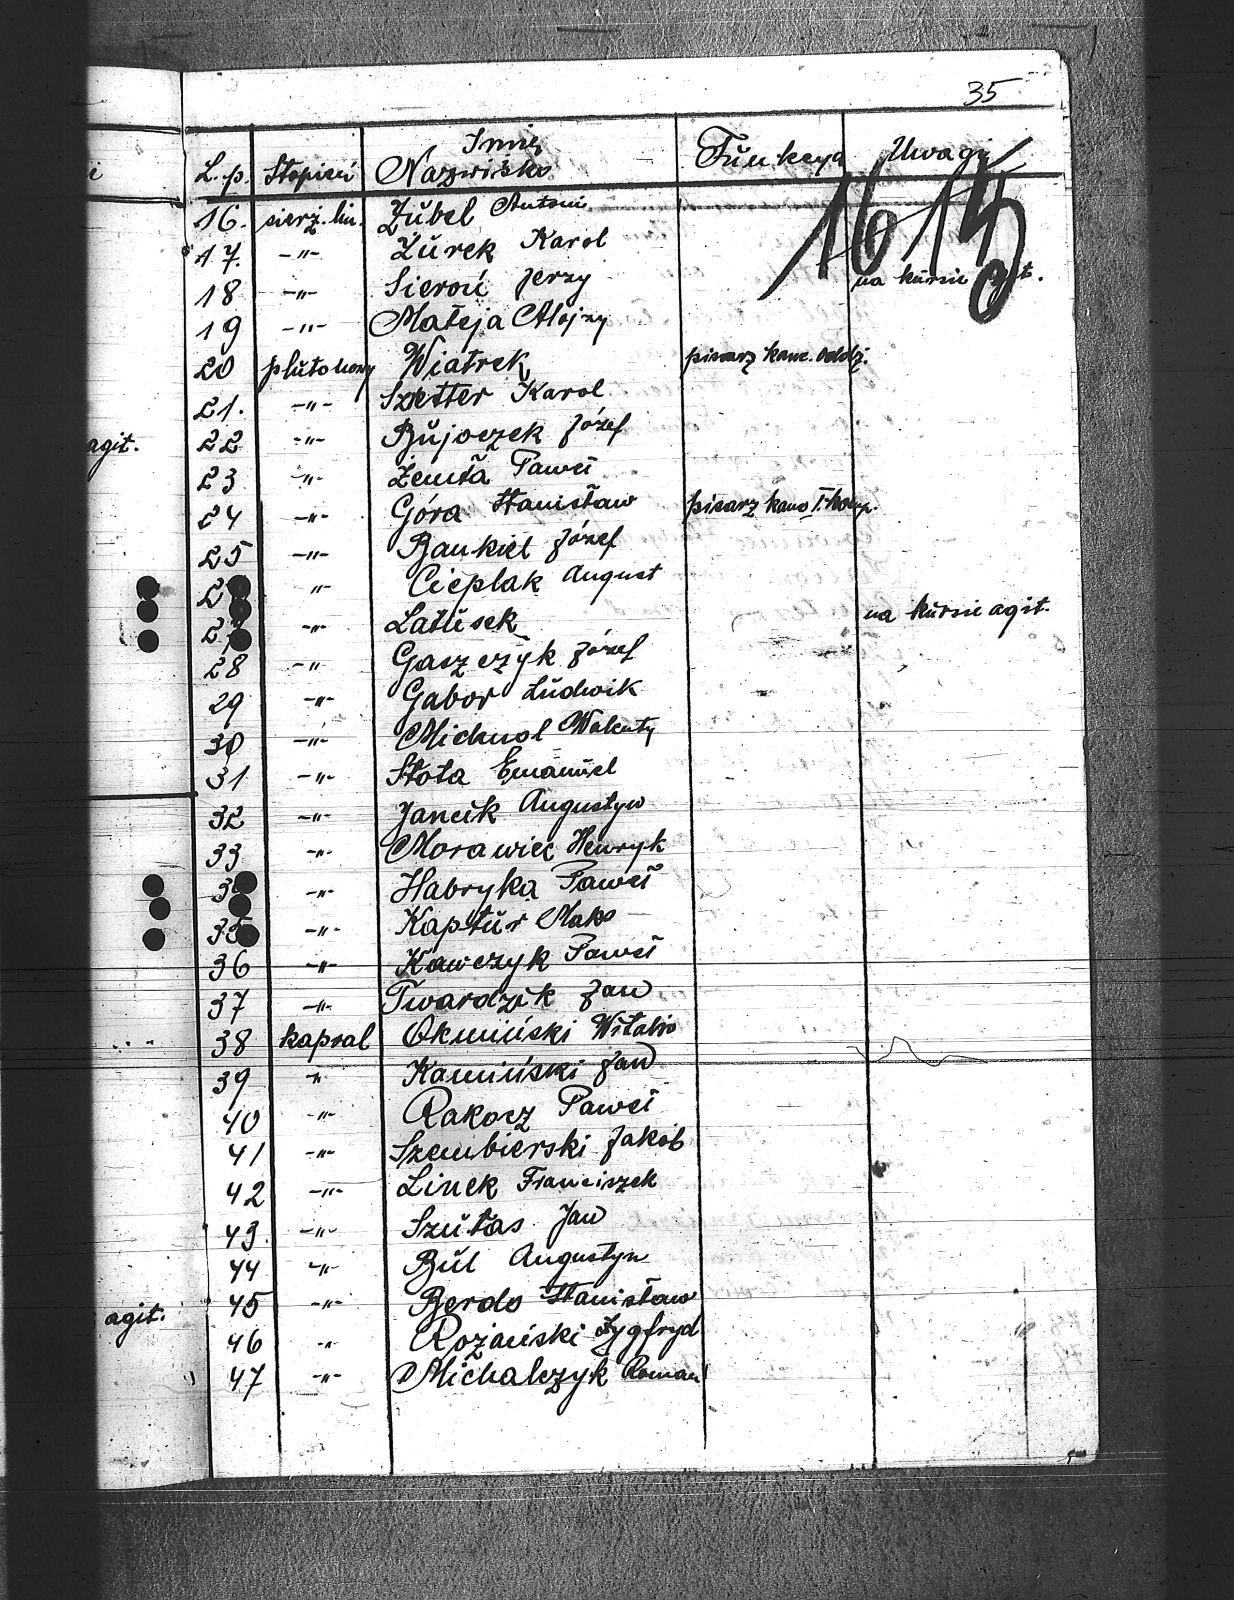 35
L.p. Stopień Imię Nazwisko Funkcya Uwagi
1615
16. sierż. lin. Zubel Antoni
17. -"- Żurek Karol
18 -"- Sieroń Jerzy na kursie agit.
19 -"- Mateja Alojzy
20 plutonowy Wiatrek pisarz kanc. oddz.
21. -"- Szetter Karol
22 -"- Bujoczek Józef
23 -"- Żemła Paweł
24 -"- Góra Stanisław pisarz kanc I. komp.
25 -"- Bankiel Józef
agit.
" Cieplak August
-"- Latusek na kursie agit.
28 -"- Gaszczyk Józef
29 -"- Gabor Ludwik
30 -"- Michnol
31 -"- Słota Emanuel
32 -"- Jancik Augustyn
33 -"- Morawiec Henryk
-"- Habryka Paweł
35 -"- Kaptur
36 -"- Kawczyk Paweł
37 -"- Twardzik Jan
38 kapral Okmiński
39 " Kamiński Jan
40 -"- Rakocz Paweł
41 -"- Szembierski Jakób
42 -"- Linek Franciszek
43. -"- Szutas Jan
44 -"- Bul Augustyn
45 -"- Berdo Stanisław
46 -"- Rożański Zygfryd
47 -"- Michalczyk Roman
agit.